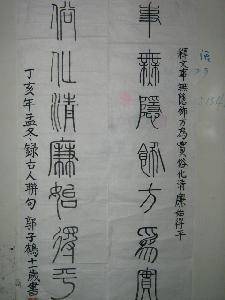 釋文事無隱飾方為實俗化清廉始得平
事無隱飾方爲實
俗化清廉始得平
丁亥年孟冬錄古人聯句 郭子鶴十二歲書